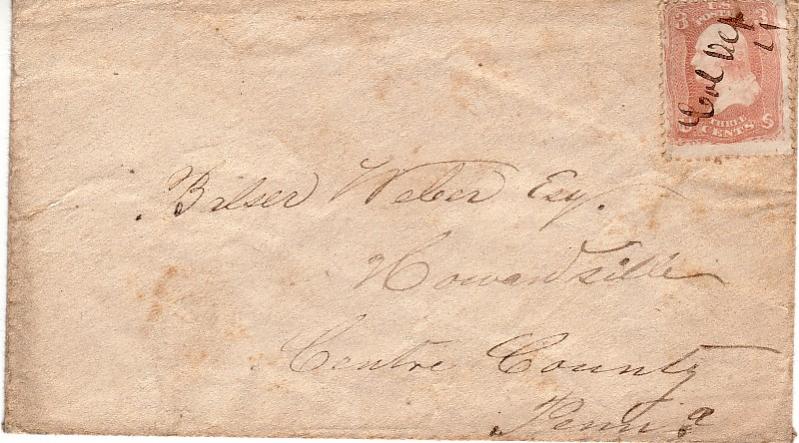 3 U.S. 3
POSTAGE
THREE
CENTS
Balser Weber Esq.
Howardsville
Centre County
Penn'a